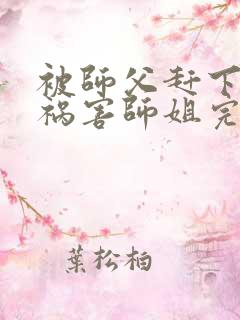 被師父赶下
祸害師姐完
葉松柏